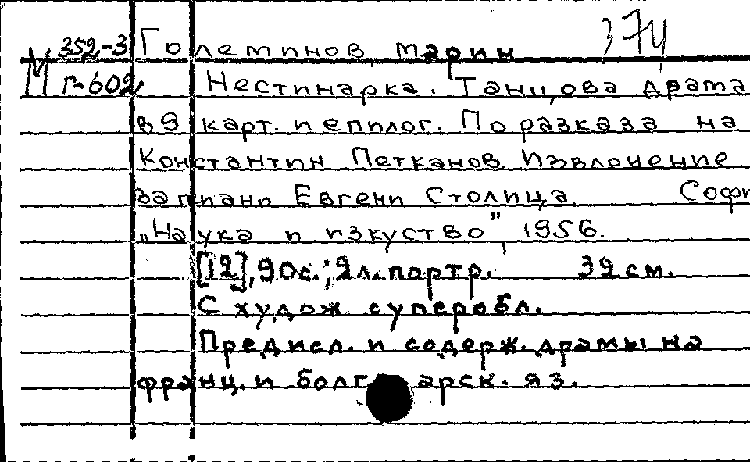 М 352-3 Големинов, Марин 374
Г-602 Нестинарка. Танцова драма
в 9 карт. и епилог. По разказа на
Константин Петканов. Извлочение
за пиано Евгени Столица. Софи
„Наука и изкуство", 1956.
[12], 90с.; 2л. портр. 39 см.
С худож. суперобл.
Предисл. и содерж. драмы на
франц. и болгарск. яз.